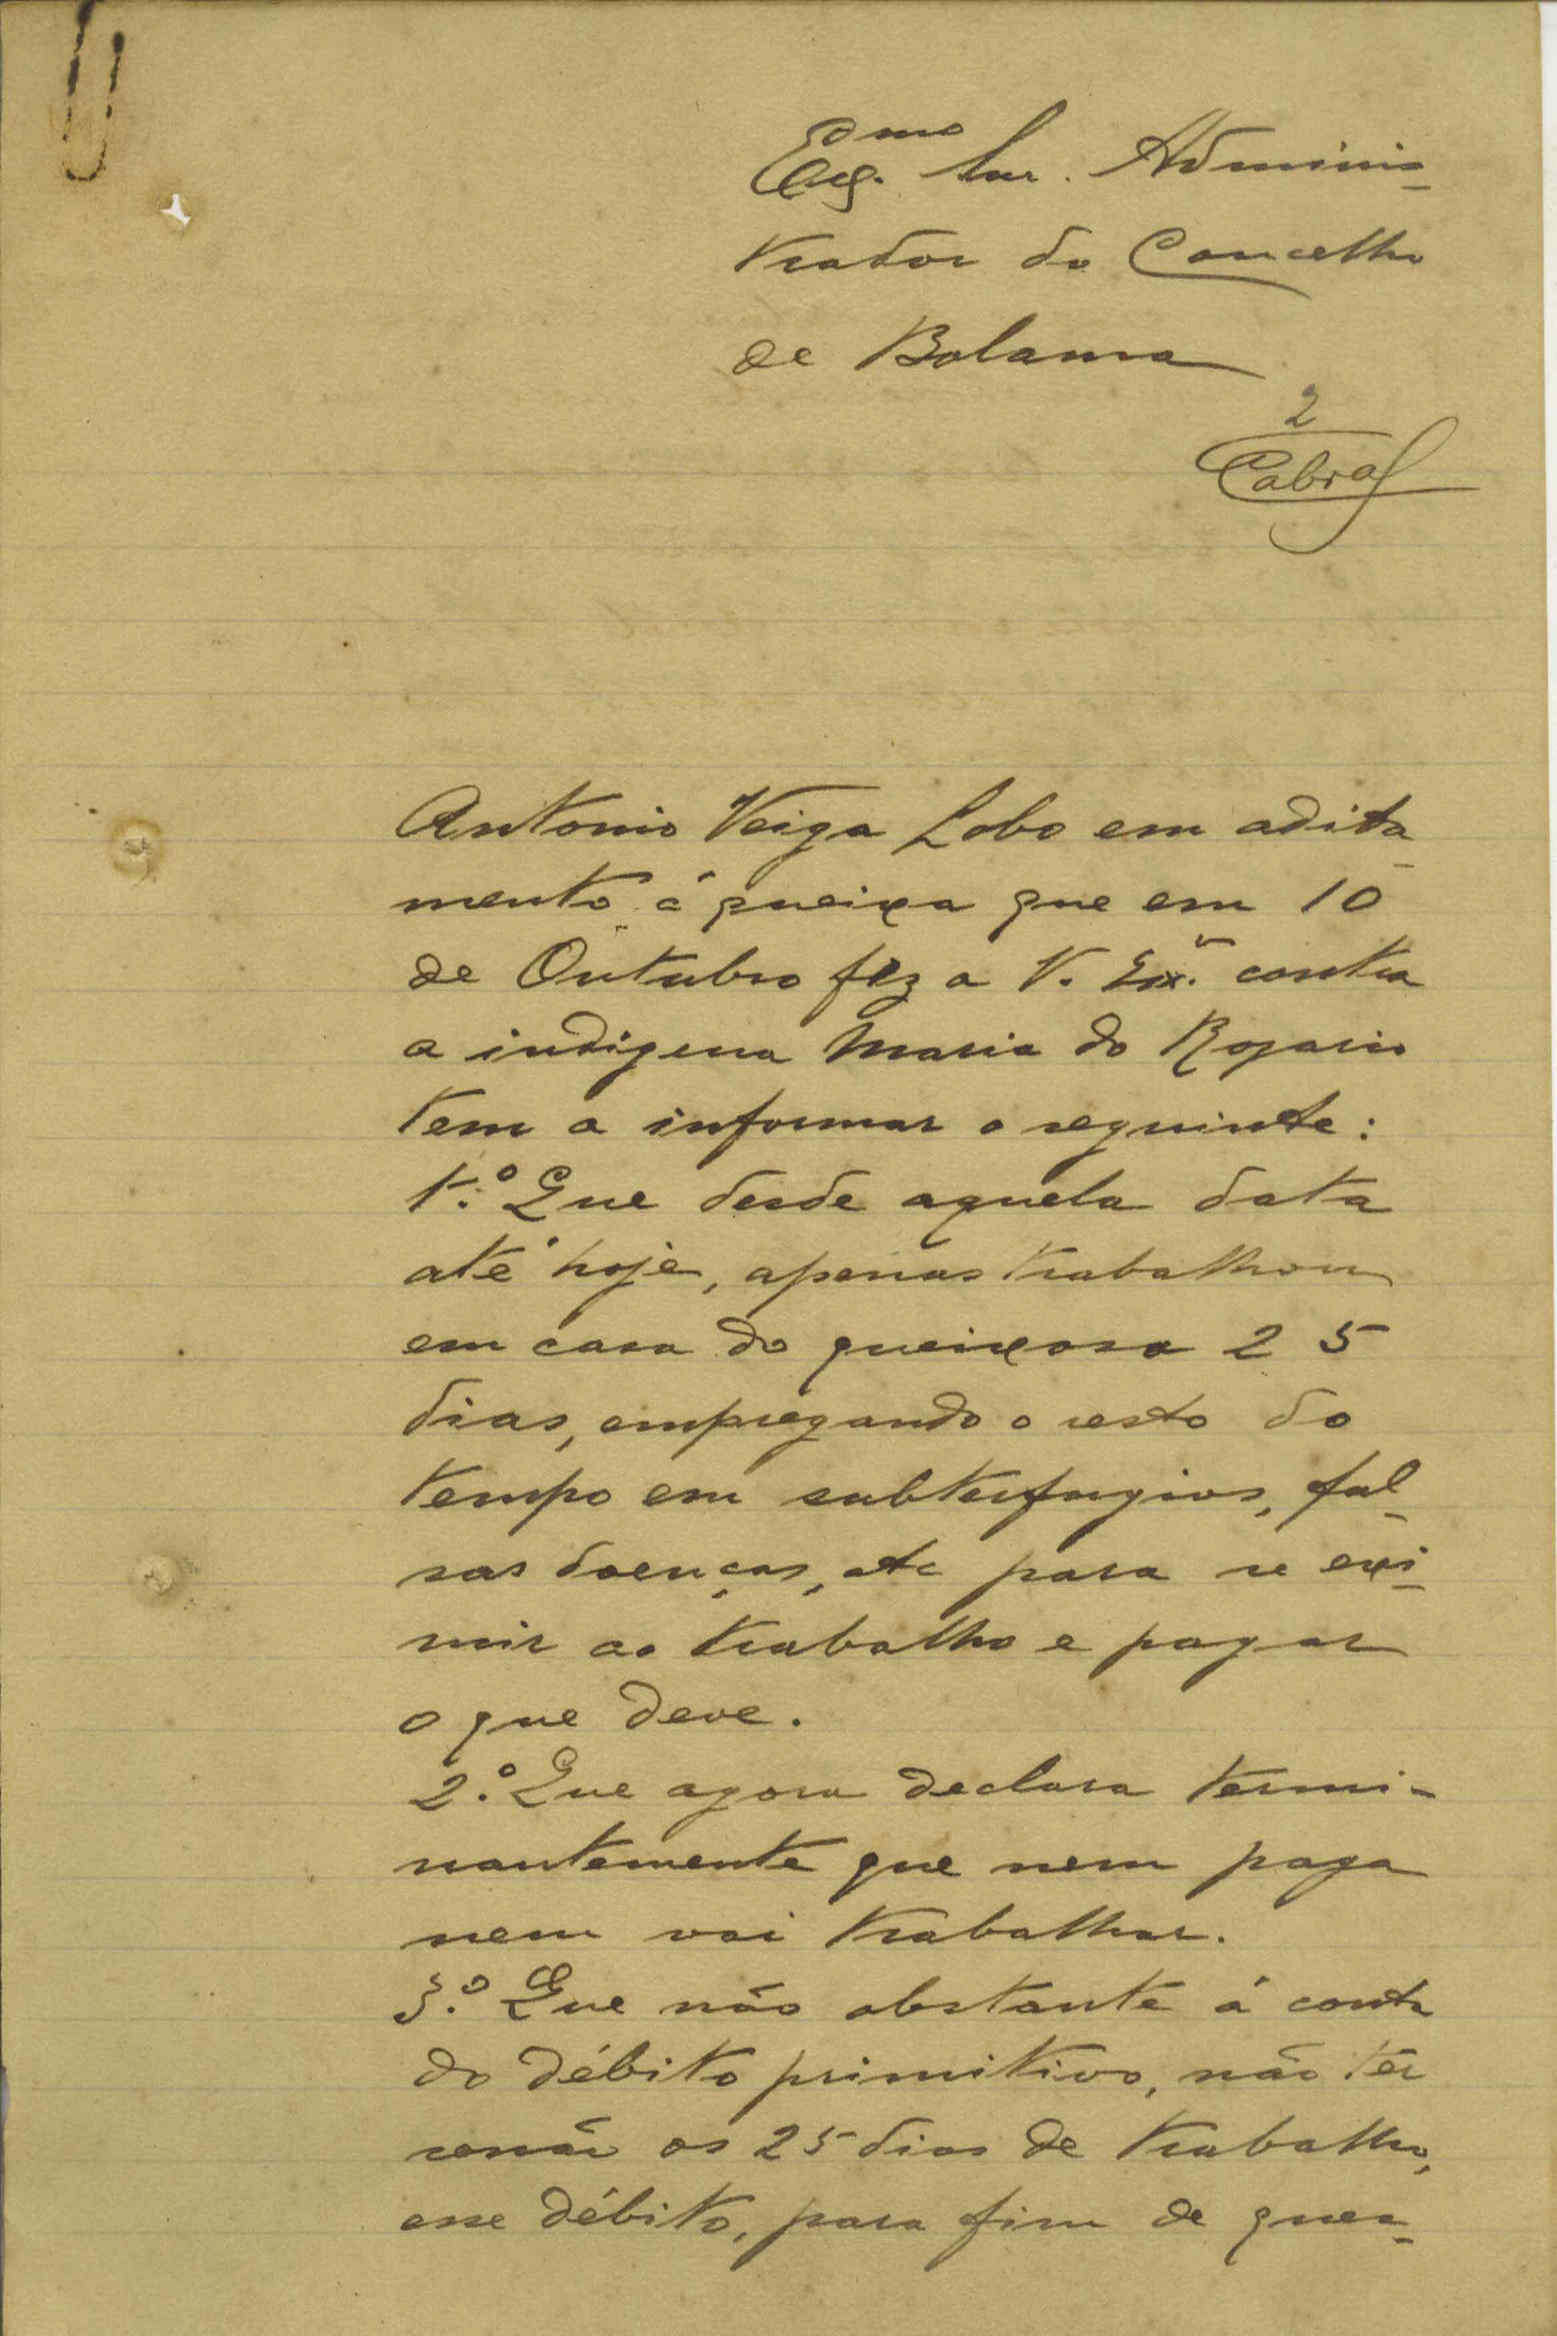 Exmo. Snr. Adminis-
trador do Concelho
de Bolama
2
Cabral
Antonio Veiga Lobo em adita-
mento á queixa que em 10
de Outubro fez a V. Exª. contra
a indigena Maria do Rosario
tem a informar o seguinte:
1.º Que desde aquela data
até hoje, apenas trabalhou
em casa do queixoso 25
dias, empregando o resto do
tempo em subterfugios, fal-
sas doenças, etc para se exi-
mir ao trabalho e pagar
o que deve.
2.º Que agora declara termi-
nantemente que nem paga
nem vai trabalhar.
3.º Que não obstante á conta
do débito primitivo, não ter
senão os 25 dias de trabalho,
esse débito, para fim de ques-